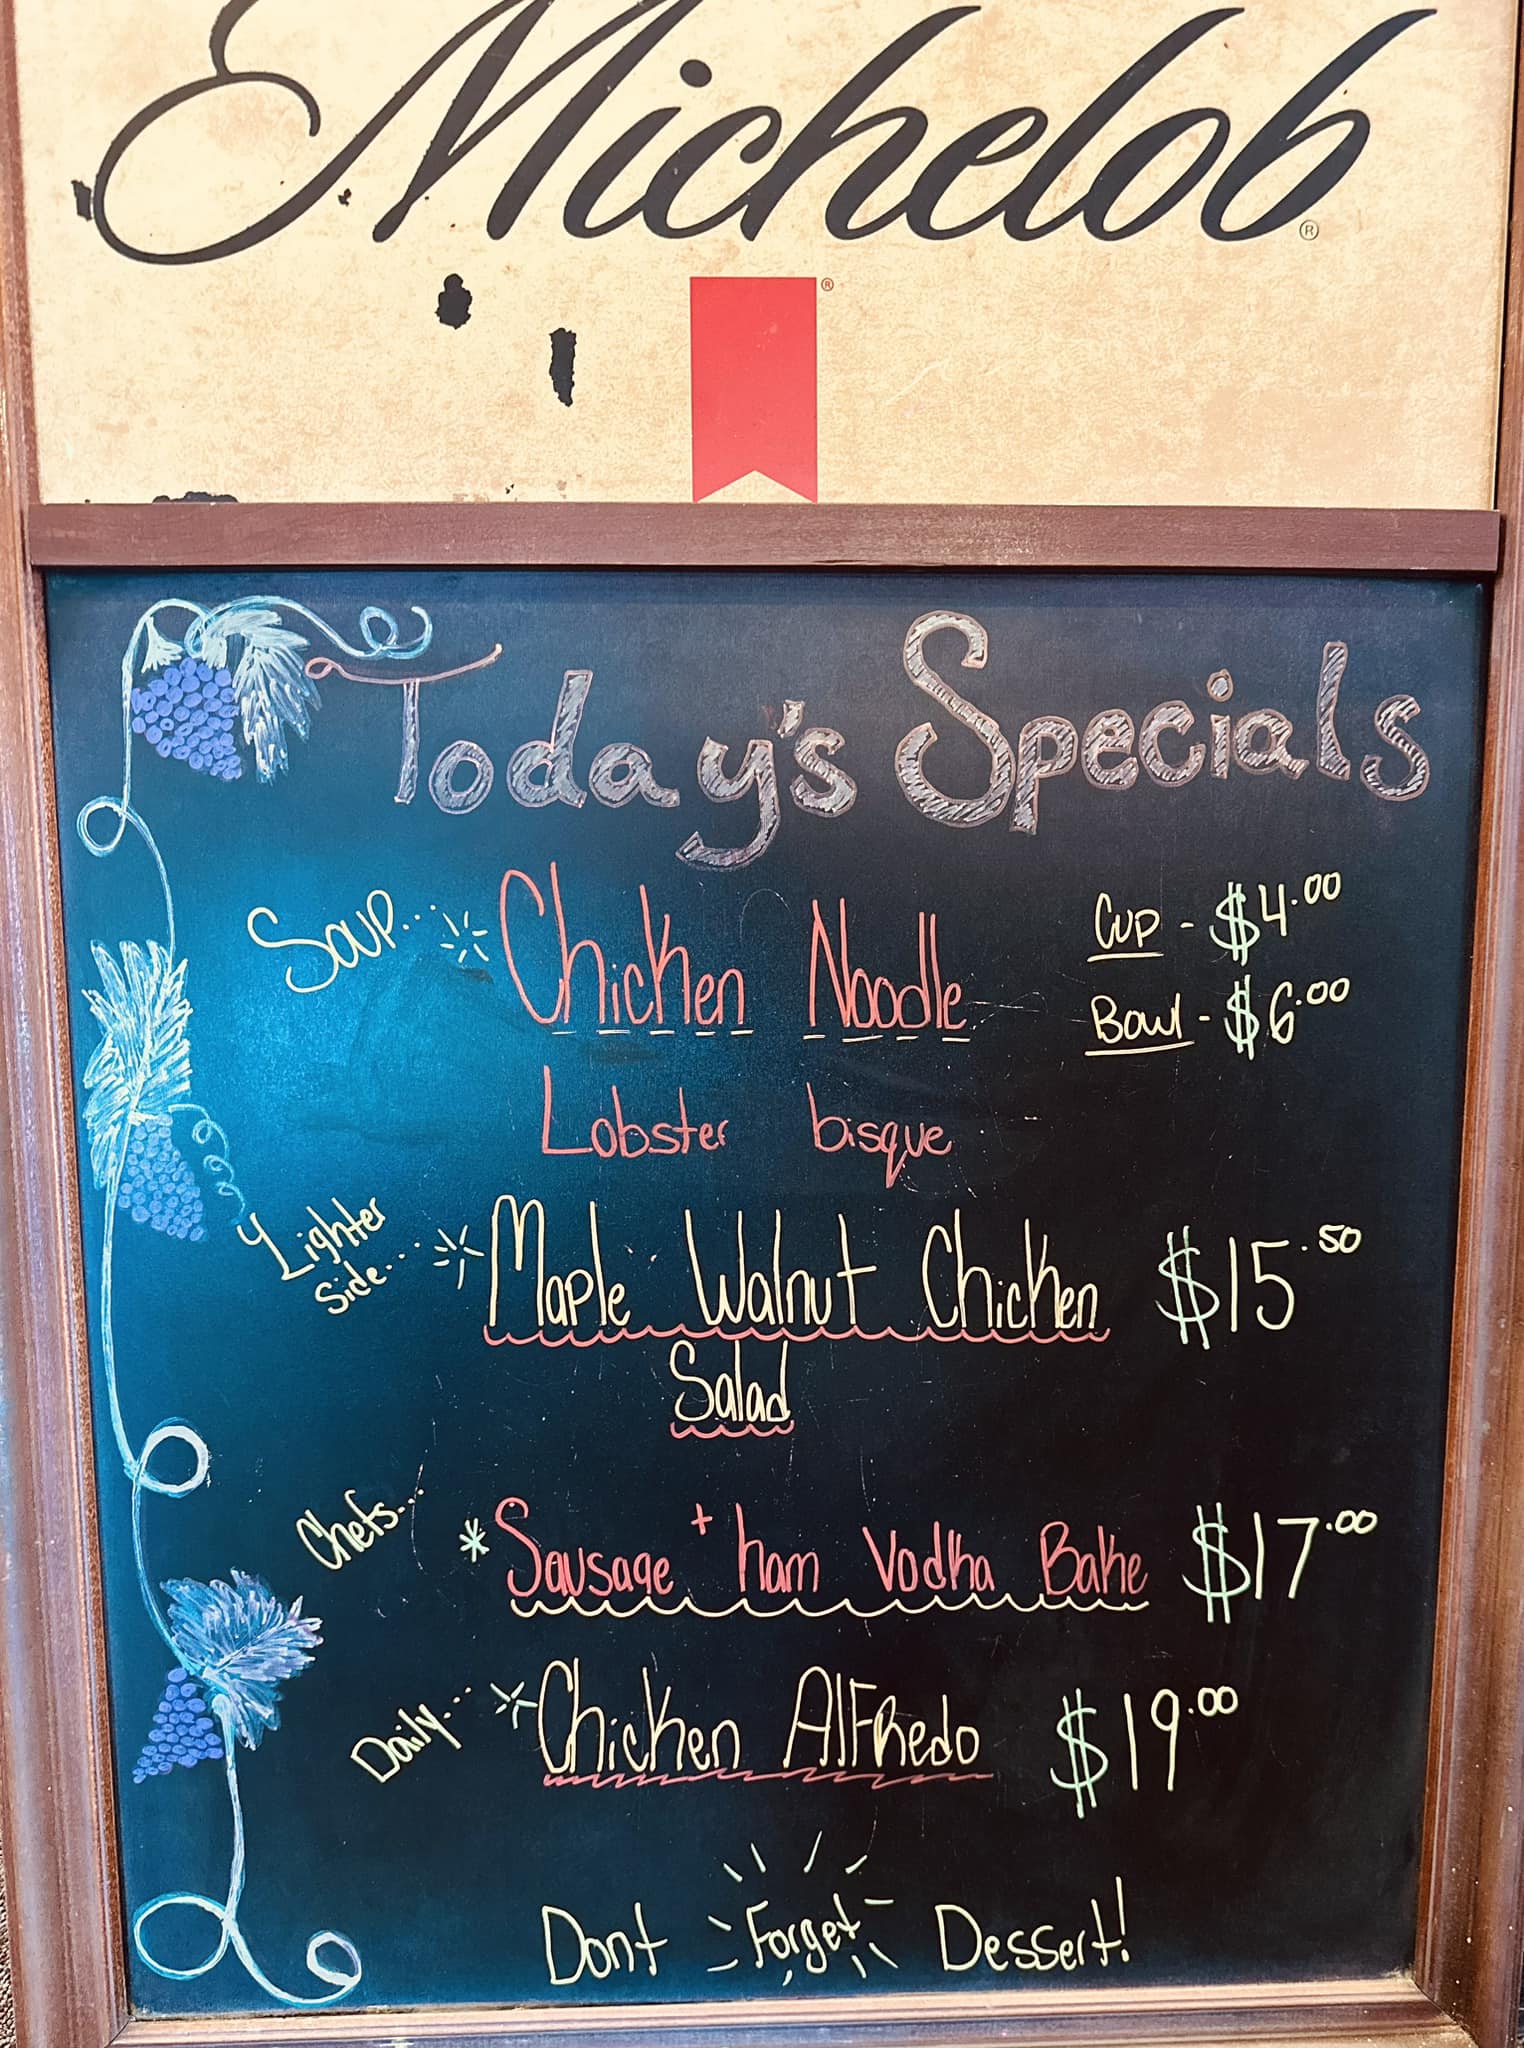 Michelob®
®
Today's Specials
Soup... Chicken Noodle Cup - $4.00
Bowl - $6.00
Lobster bisque
Lighter
Side... Maple Walnut Chicken $15.50
Salad
Chefs... * Sausage + ham Vodka Bake $17.00
Daily... Chicken AlFredo $19.00
Dont Forget Dessert!